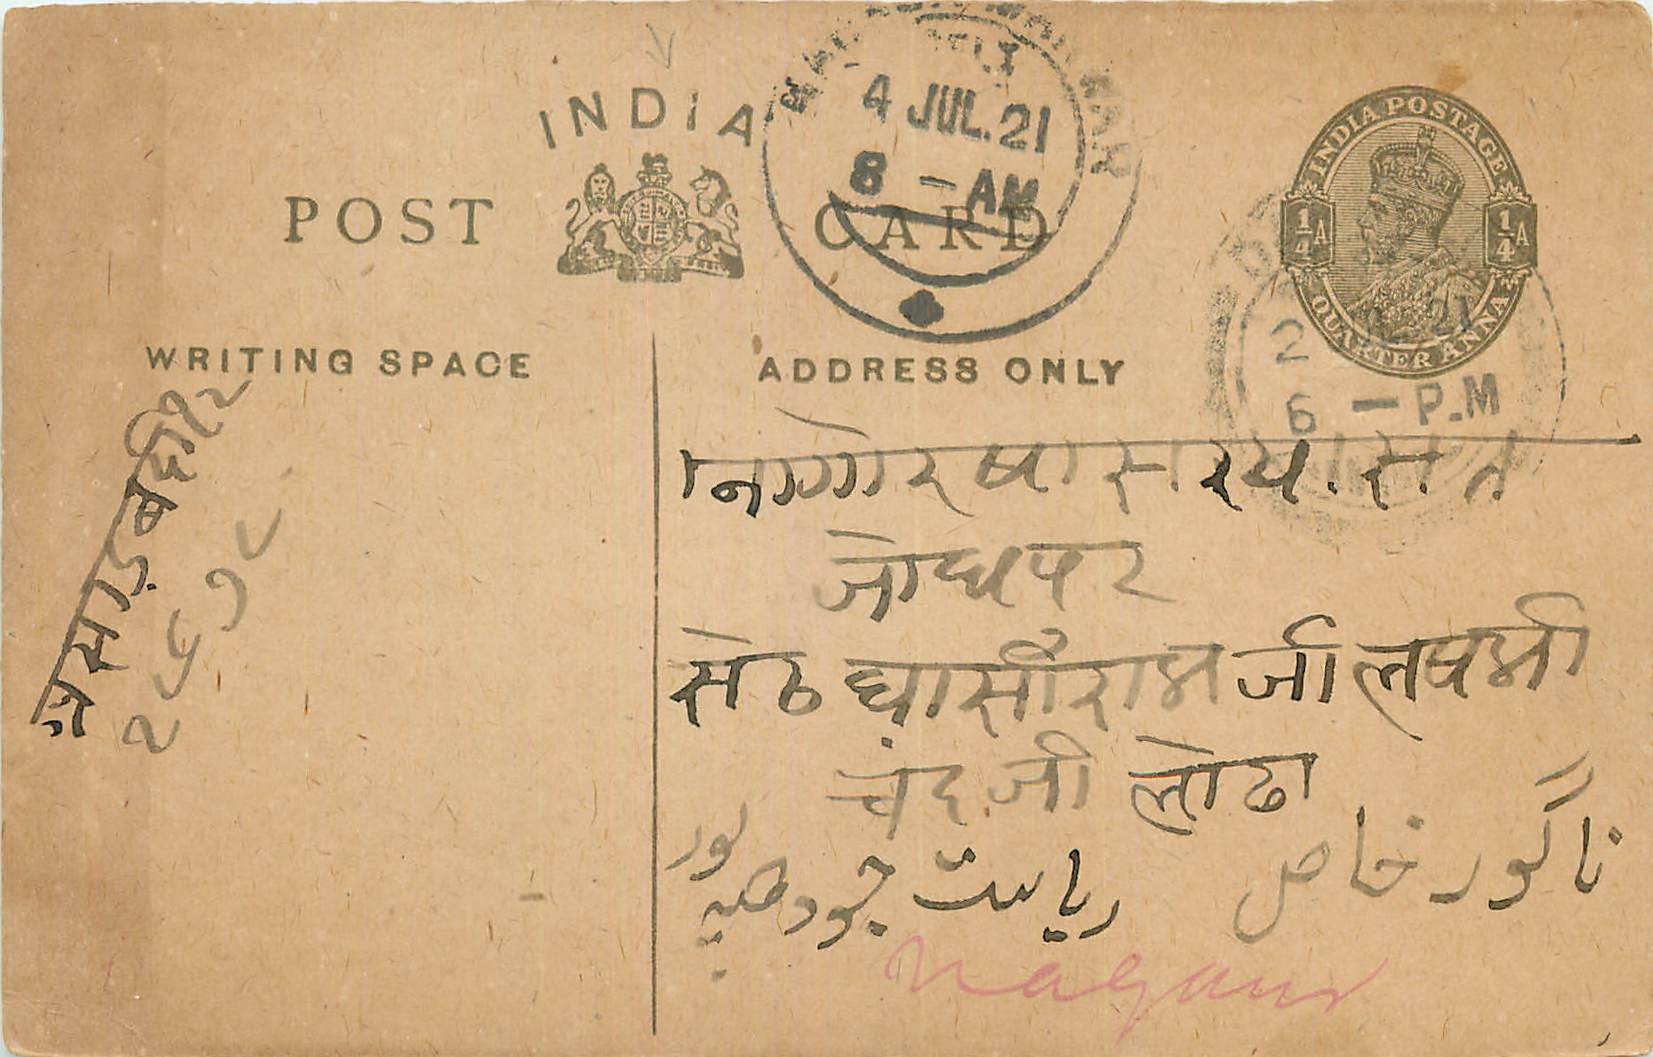 INDIA
POST CARD
4 JUL.21
8 - AM
INDIA POSTAGE
¼A ¼A
QUARTER ANNA
2 21
6 - P.M
WRITING SPACE
ADDRESS ONLY
नागोर षास
जोधपर
सेठ घासीराम जी लषमी
चंद जी लोढा
ناگور خاص
ریاست جودھپور
Nagaur